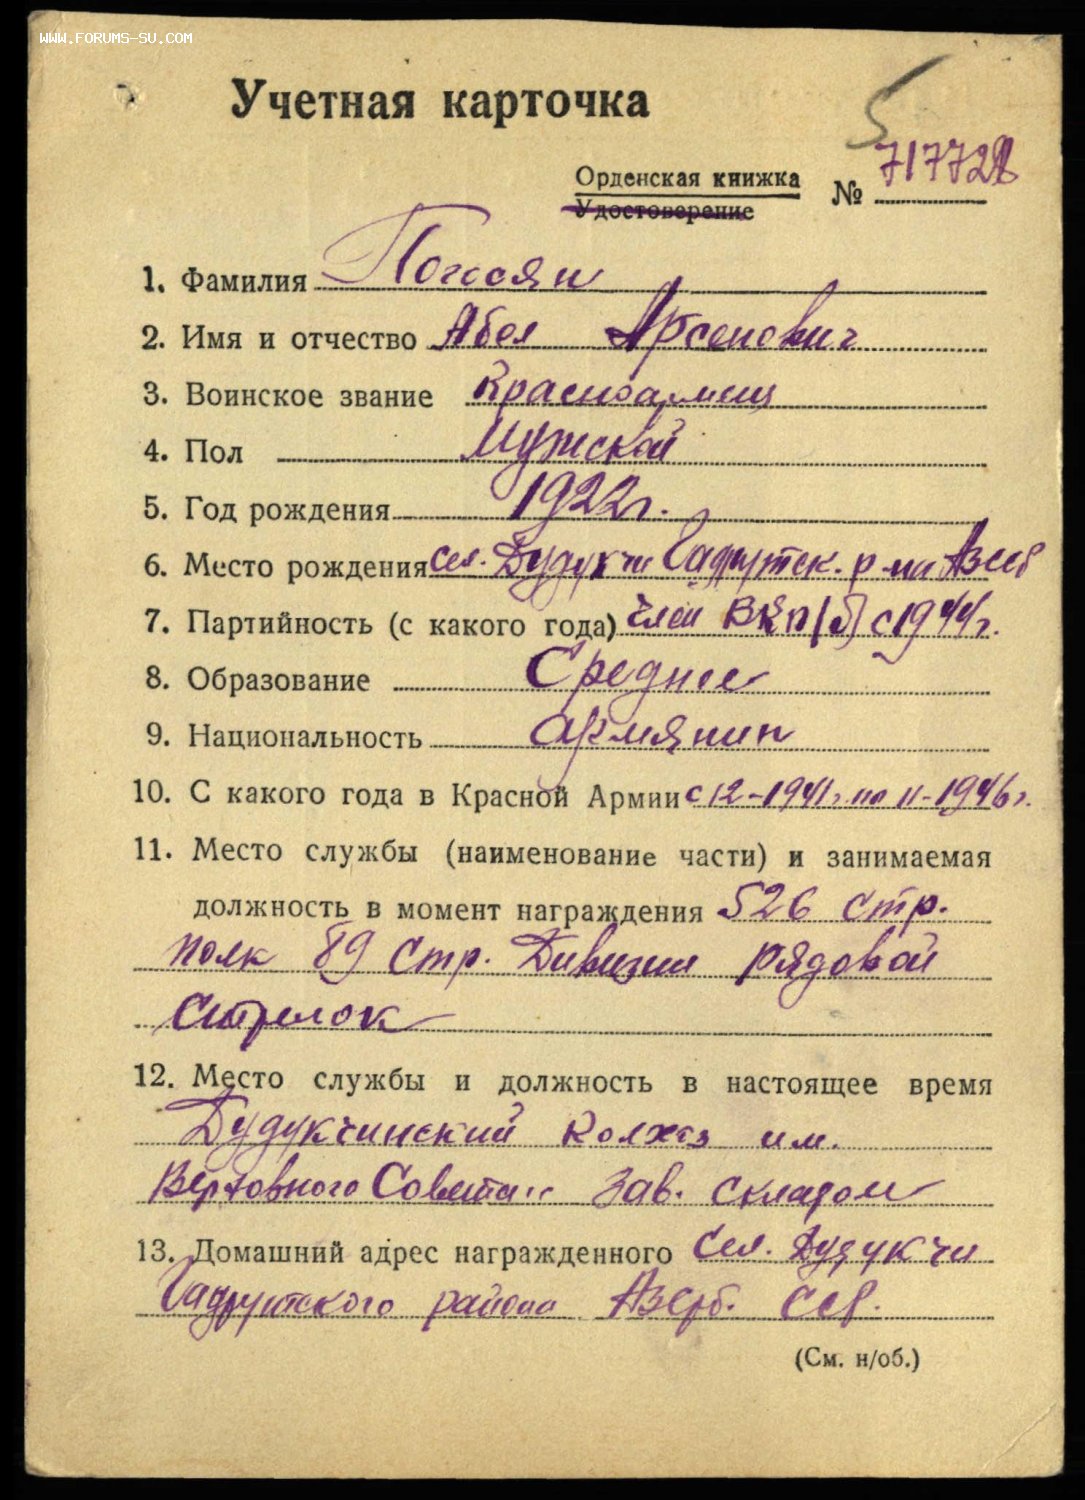 WWW.FORUMS-SU.COM
Учетная карточка
5
Орденская книжка № 717728
Удостоверение
1. Фамилия Погосян
2. Имя и отчество Абел Арсенович
3. Воинское звание Красноармеец
4. Пол Мужской
5. Год рождения 1922 г.
6. Место рождения Сел. Дудукчи Гадрутск. р-на Аз ССР
7. Партийность (с какого года) член ВКП(б) с 1944 г.
8. Образование Среднее
9. Национальность армянин
10. С какого года в Красной Армии с 12-1941 г. по 11-1946 г.
11. Место службы (наименование части) и занимаемая
должность в момент награждения 526 стр.
полк 89 Стр. Дивизии рядовой
стрелок
12. Место службы и должность в настоящее время
Дудукчинский Колхоз им.
Верховного Совета" Зав. складом
13. Домашний адрес награжденного Сел. Дудукчи
Гадрутского района Азерб. ССР.
(См. н/об.)